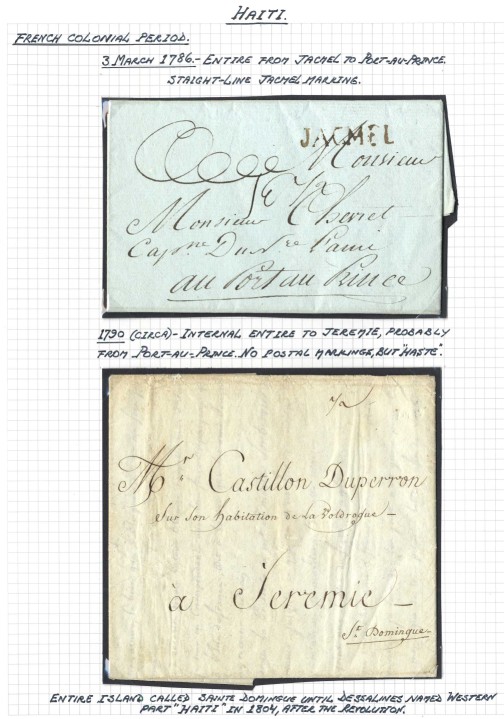 HAITI.
FRENCH COLONIAL PERIOD.
3 MARCH 1786.- ENTIRE FROM JACMEL TO PORT-AU-PRINCE.
STAIGHT-LINE JACMEL MARKING.
JACMEL
Monsieur
Monsieur Cheviel
Capne Du Nre L'ami
au Port au Prince
1790 (CIRCA)- INTERNAL ENTIRE TO JEREMIE, PROBABLY
FROM PORT-AU-PRINCE. NO POSTAL MARKINGS, BUT "HASTE".
Mr. Castillon Duperron
Sur son habitation de la Voldrogue -
à Jeremie -
St. Domingue.
ENTIRE ISLAND CALLED SAINTE DOMINGUE UNTIL DESSALINES NAMED WESTERN
PART "HAITI" IN 1804, AFTER THE REVOLUTION.